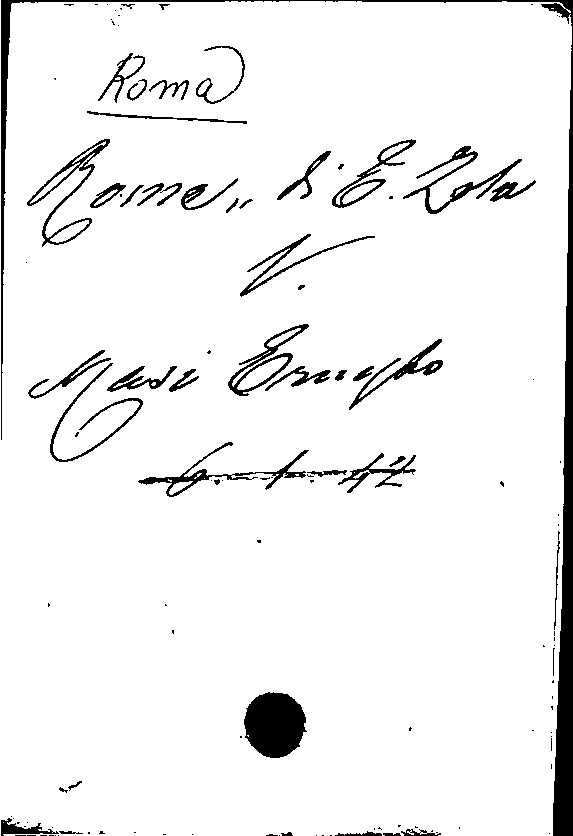 Roma
Rome„ di E. Zola
V.
Masi Ernesto
6. 1. 42